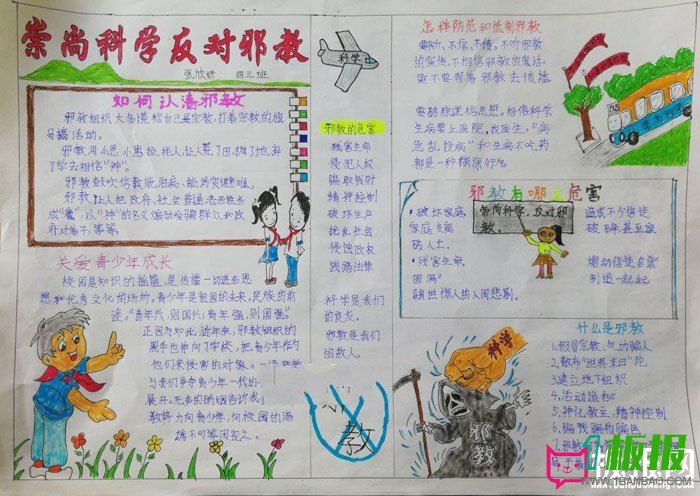 崇尚科学反对邪教
张欣妍 四三班
如何认清邪教
邪教组织大多谎称自己是宗教,打着宗教的旗
号搞活动。
邪教用小恩小惠拉拢人,让人荒了田,抛了地,弃
了学去相信“神”。
邪教鼓吹信教能治病,能消灾避难。
邪教让人把政府、社会普通老百姓当
成“魔”,以“神”的名义煽动受骗群众和政
府对着干,等等。
关爱青少年成长
校园是知识的摇篮,是传播一切进步思
想和优秀文化的场所,青少年是祖国的未来,民族的前
途。“青年兴,则国兴;青年强,则国强。”
正因为如此,近年来,邪教组织的
黑手也伸向了学校,把青少年作为
他们来侵害的对象。一场邪教
与我们争夺青少年一代的
展开。无声的硝烟告诉我们
教将
科学
邪教的危害
残害生命
侵犯人权
骗取钱财
精神控制
破坏生产
扰乱社会
侵蚀政权
践踏法律
科学是我们
的良友。
邪教是我们
的敌人。
教
怎样防范和抵制邪教
不听邪教
的宣传,不相信邪教的鬼话;
更不要帮邪教去传播
要破除迷信思想。相信科学
生病要上医院,找医生,“病
急乱投病”和生病不吃药
都是一种糊涂行为。
邪教有哪些危害
崇尚科学,反对邪
教。
破坏家庭
残害生命。
圆满”
酿出惊人的人间悲剧。
科学
邪教
什么是邪教
1.假冒宗教、气功骗人
2.散布“世界末日”论
3.建立地下组织
4.活动诡秘
5.神化教主,精神控制
6.骗钱骗物骗色
板报
WWW.1BANBAO.COM